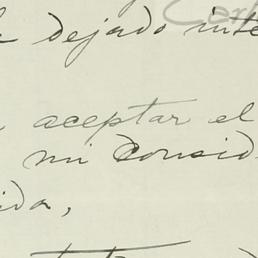 Car
dejado inte
aceptar el
mi consid
ida,